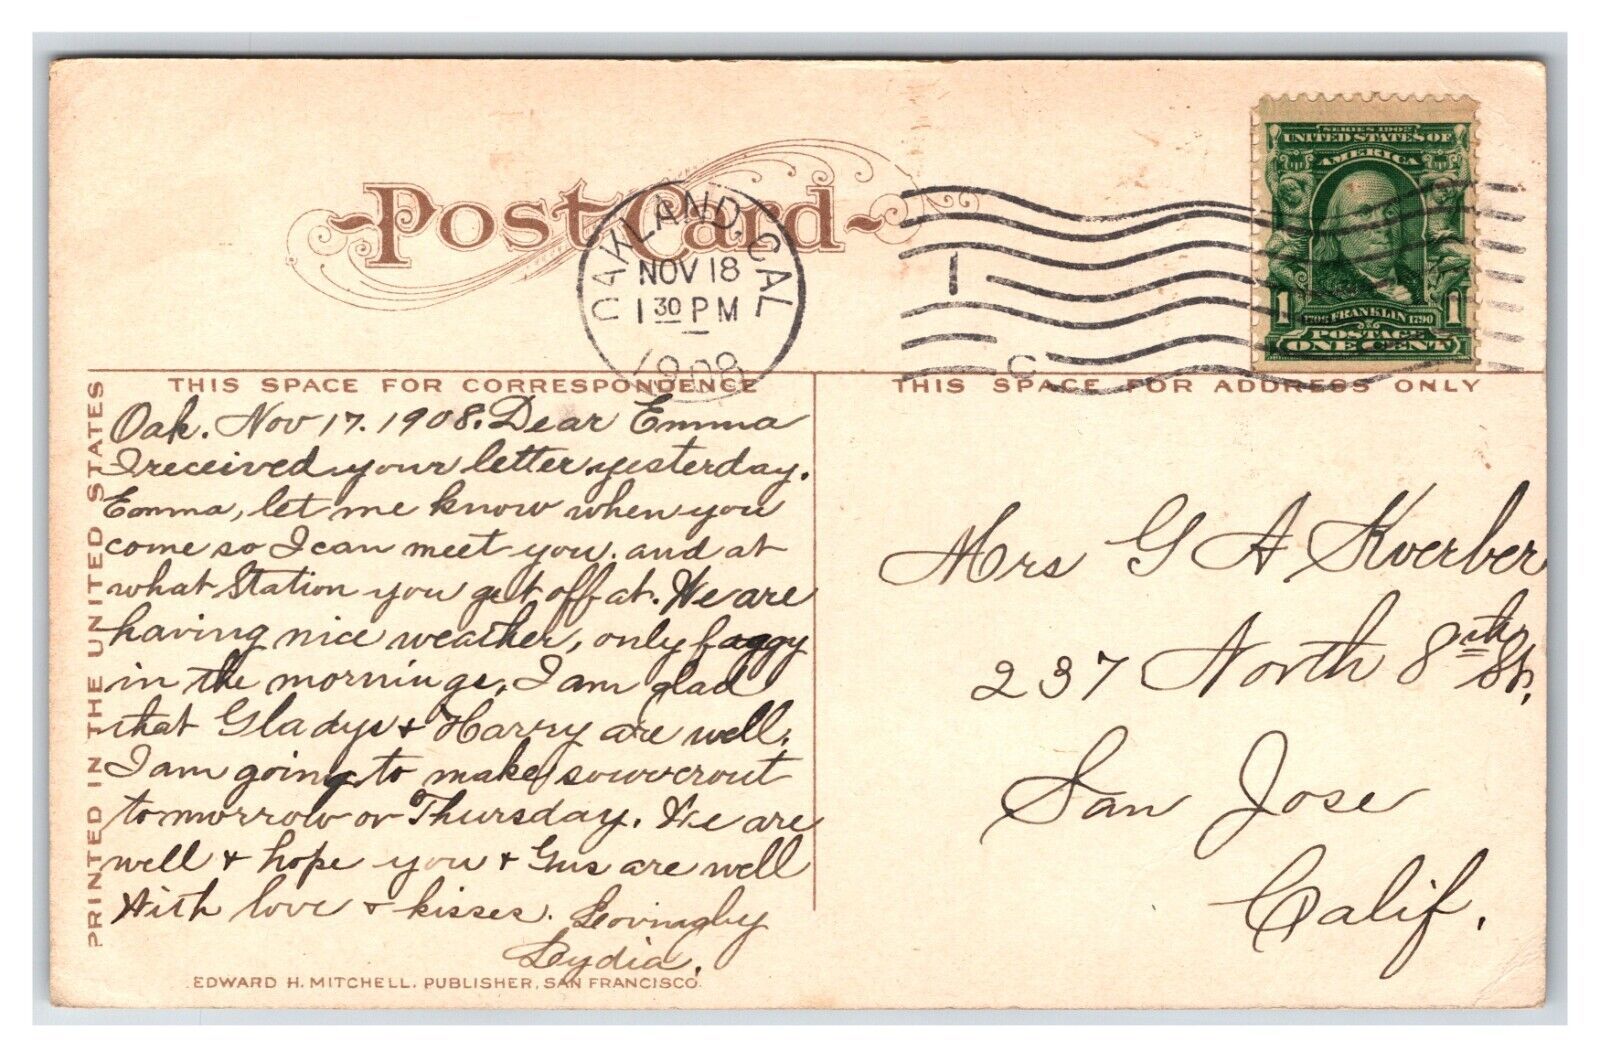 Post Card
OAKLAND, CAL
NOV 18
1 30 PM
1908
1
C
SERIES 1902
UNITED STATES OF
AMERICA
1706 FRANKLIN 1790
1 POSTAGE 1
ONE CENT
THIS SPACE FOR CORRESPONDENCE
THIS SPACE FOR ADDRESS ONLY
PRINTED IN THE UNITED STATES
Oak. Nov 17. 1908. Dear Emma
I received your letter yesterday.
Emma, let me know when you
come so I can meet you. and at
what Station you get off at. We are
having nice weather, only foggy
in the mornings. I am glad
that Gladys + Harry are well.
I am going to make souvercrout
tomorrow or Thursday. We are
well + hope you + Gus are well
With love + kisses. Lovingly
Lydia.
Mrs G A Kverber
237 North 8th St.
San Jose
Calif.
EDWARD H. MITCHELL, PUBLISHER, SAN FRANCISCO.